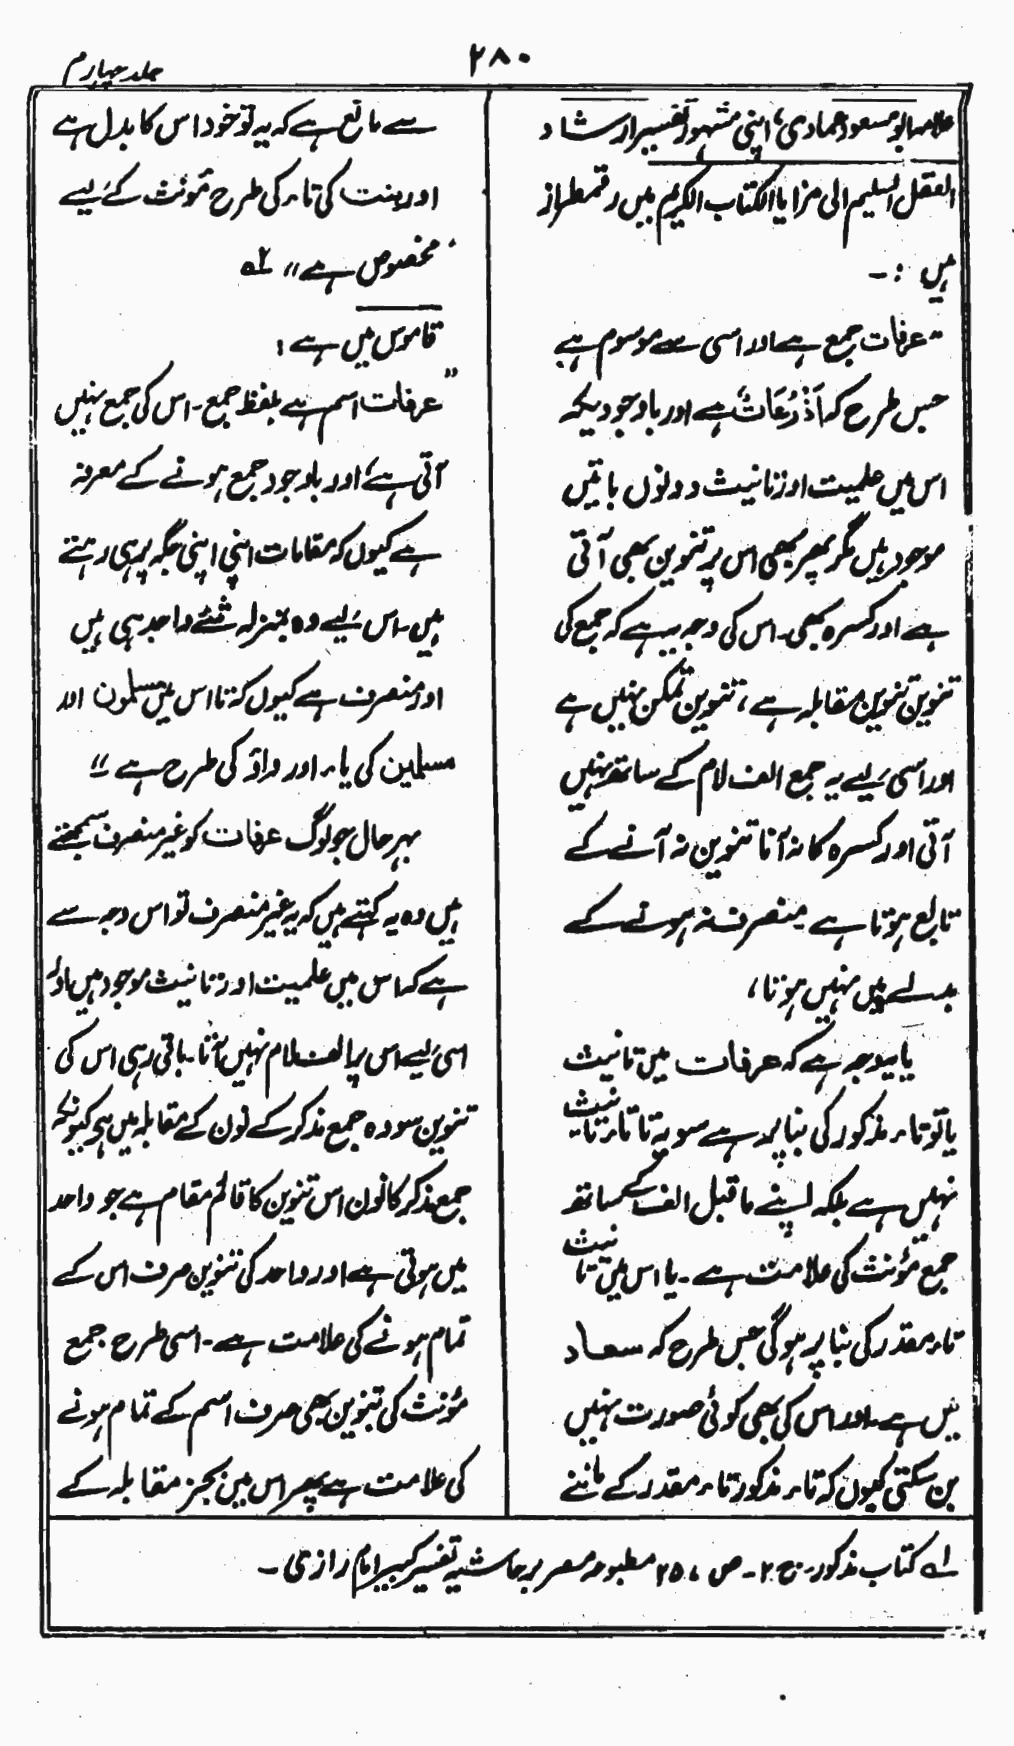 ۲۸۰
جلد چہارم
علامہ ابو مسعود عمادی، اپنی مشہور تفسیر ارشاد
العقل السلیم الی مزایا الکتاب الکریم میں رقمطراز
ہیں :-
"عرفات جمع ہے اور اسی سے موسوم ہے
جس طرح کہ اَذْرُعَاتٌ ہے اور باوجودیکہ
اس میں علمیت اور تانیث دونوں باتیں
موجود ہیں مگر پھر بھی اس پر تنوین بھی آتی
ہے اور کسرہ بھی۔ اس کی وجہ یہ ہے کہ جمع کی
تنوین تنوین مقابلہ ہے، تنوین تمکن نہیں ہے
اور اسی لیے یہ جمع الف لام کے ساتھ نہیں
آتی اور کسرہ کا نہ آنا تنوین نہ آنے کے
تابع ہوتا ہے۔ منصرف نہ ہونے کے
بدلے میں نہیں ہوتا،
یا یہ وجہ ہے کہ عرفات میں تانیث
یا تو تاء مذکور کی بنا پر ہے سو یہ تا تاء تانیث
نہیں ہے بلکہ اپنے ماقبل الف کے ساتھ
جمع مؤنث کی علامت ہے۔ یا اس میں تانیث
تاء مقدر کی بنا پر ہوگی جس طرح کہ سعاد
میں ہے۔ اور اس کی بھی کوئی صورت نہیں
بن سکتی کیوں کہ تاء مذکور تاء مقدر کے ماننے
سے مانع ہے کہ یہ تو خود اس کا بدل ہے
اور بنت کی تاء کی طرح مؤنث کے لیے
مخصوص ہے" لہ
قاموس میں ہے :
"عرفات اسم ہے بلفظ جمع۔ اس کی جمع نہیں
آتی ہے، اور باوجود جمع ہونے کے معرفہ
ہے کیوں کہ مقامات اپنی اپنی جگہ پر ہی رہتے
ہیں۔ اس لیے وہ بمنزلہ شئے واحد ہی ہیں
اور منصرف ہے کیوں کہ تا اس میں مسلمون اور
مسلمین کی یاء اور واؤ کی طرح ہے"
بہرحال جو لوگ عرفات کو غیر منصرف سمجھتے
ہیں وہ یہ کہتے ہیں کہ یہ غیر منصرف تو اس وجہ سے
ہے کہ اس میں علمیت اور تانیث موجود ہیں اور
اسی لیے اس پر الف لام نہیں آتا۔ باقی رہی اس کی
تنوین سو وہ جمع مذکر کے نون کے مقابلہ میں ہے کیونکہ
جمع مذکر کا نون اس تنوین کا قائم مقام ہے جو واحد
میں ہوتی ہے اور واحد کی تنوین صرف اس کے
تمام ہونے کی علامت ہے۔ اسی طرح جمع
مؤنث کی تنوین بھی صرف اسم کے تمام ہونے
کی علامت ہے پھر اس میں بجز مقابلہ کے
لہ کتاب مذکور۔ ج ۲۔ ص ۲۵۷ مطبوعہ مصر بر حاشیہ تفسیر کبیر امام رازی۔